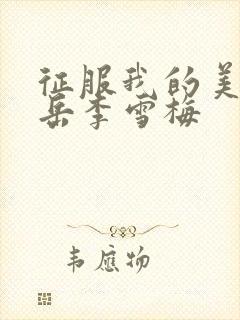 征服我的美
岳李雪梅
韦应物